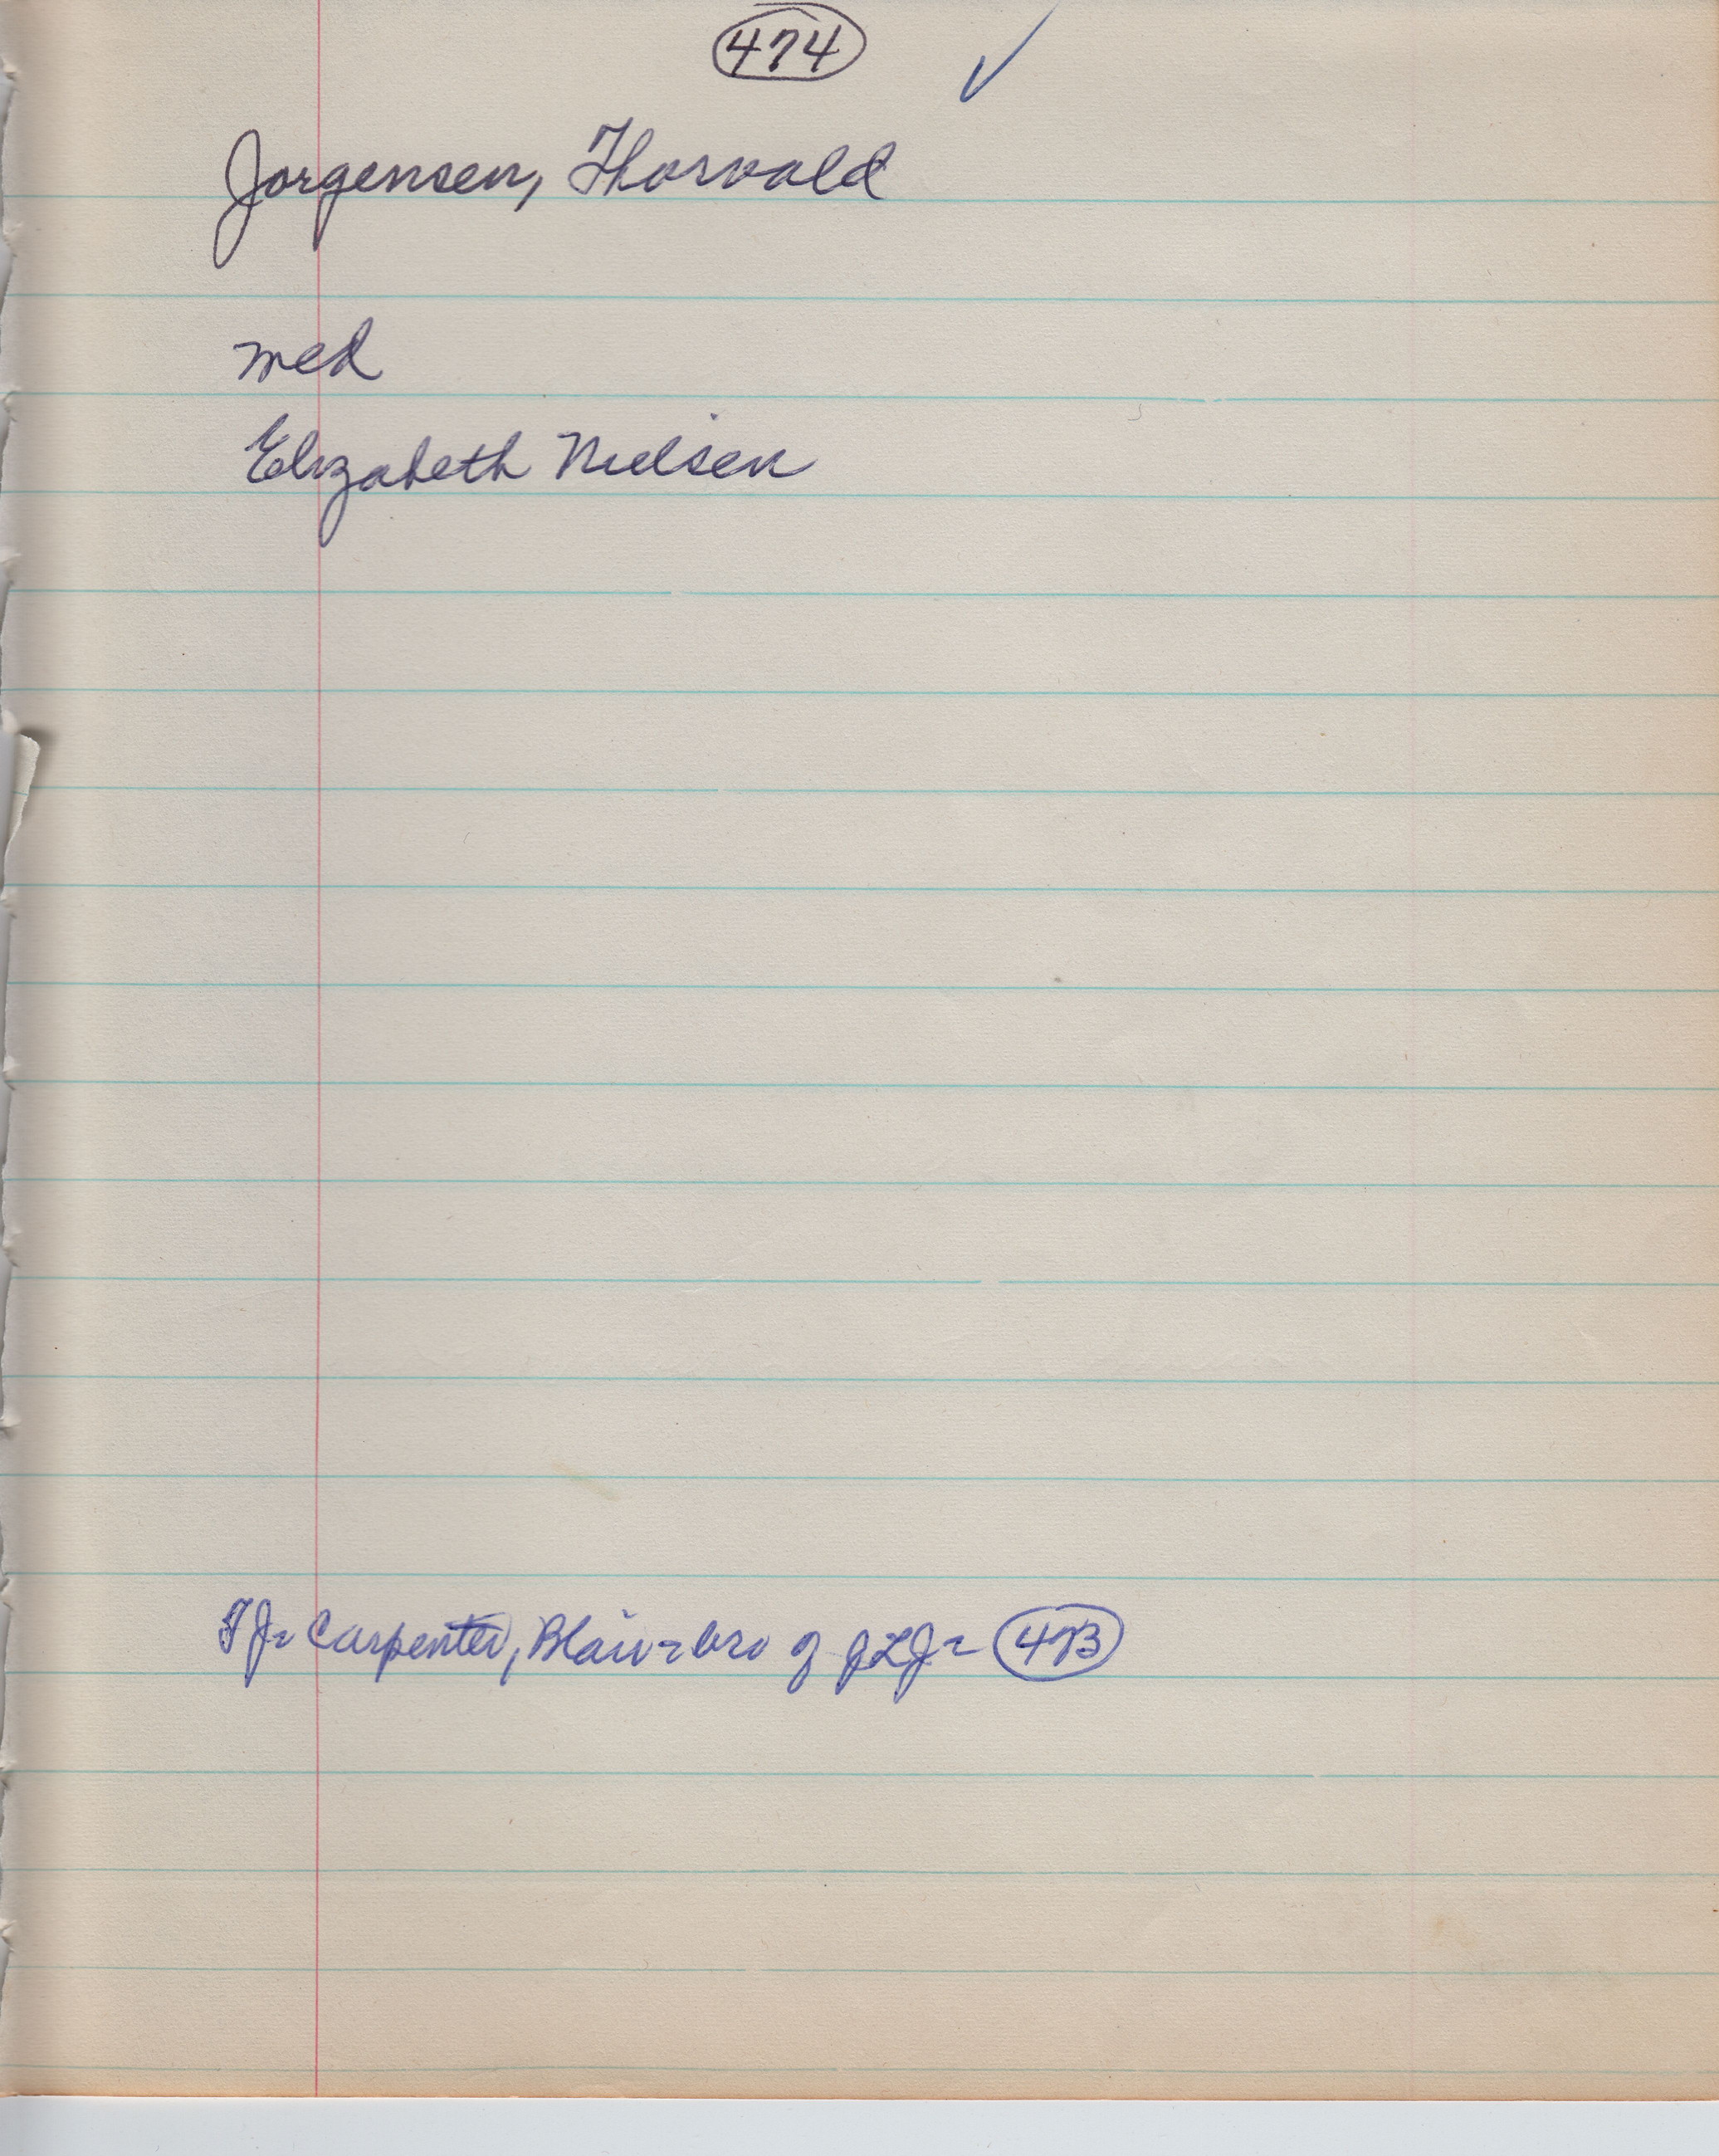 474 ✓
Jorgensen, Thorvald
med
Elizabeth Nielsen
TJ= Carpenter, Blair = bro of JLJ = 473